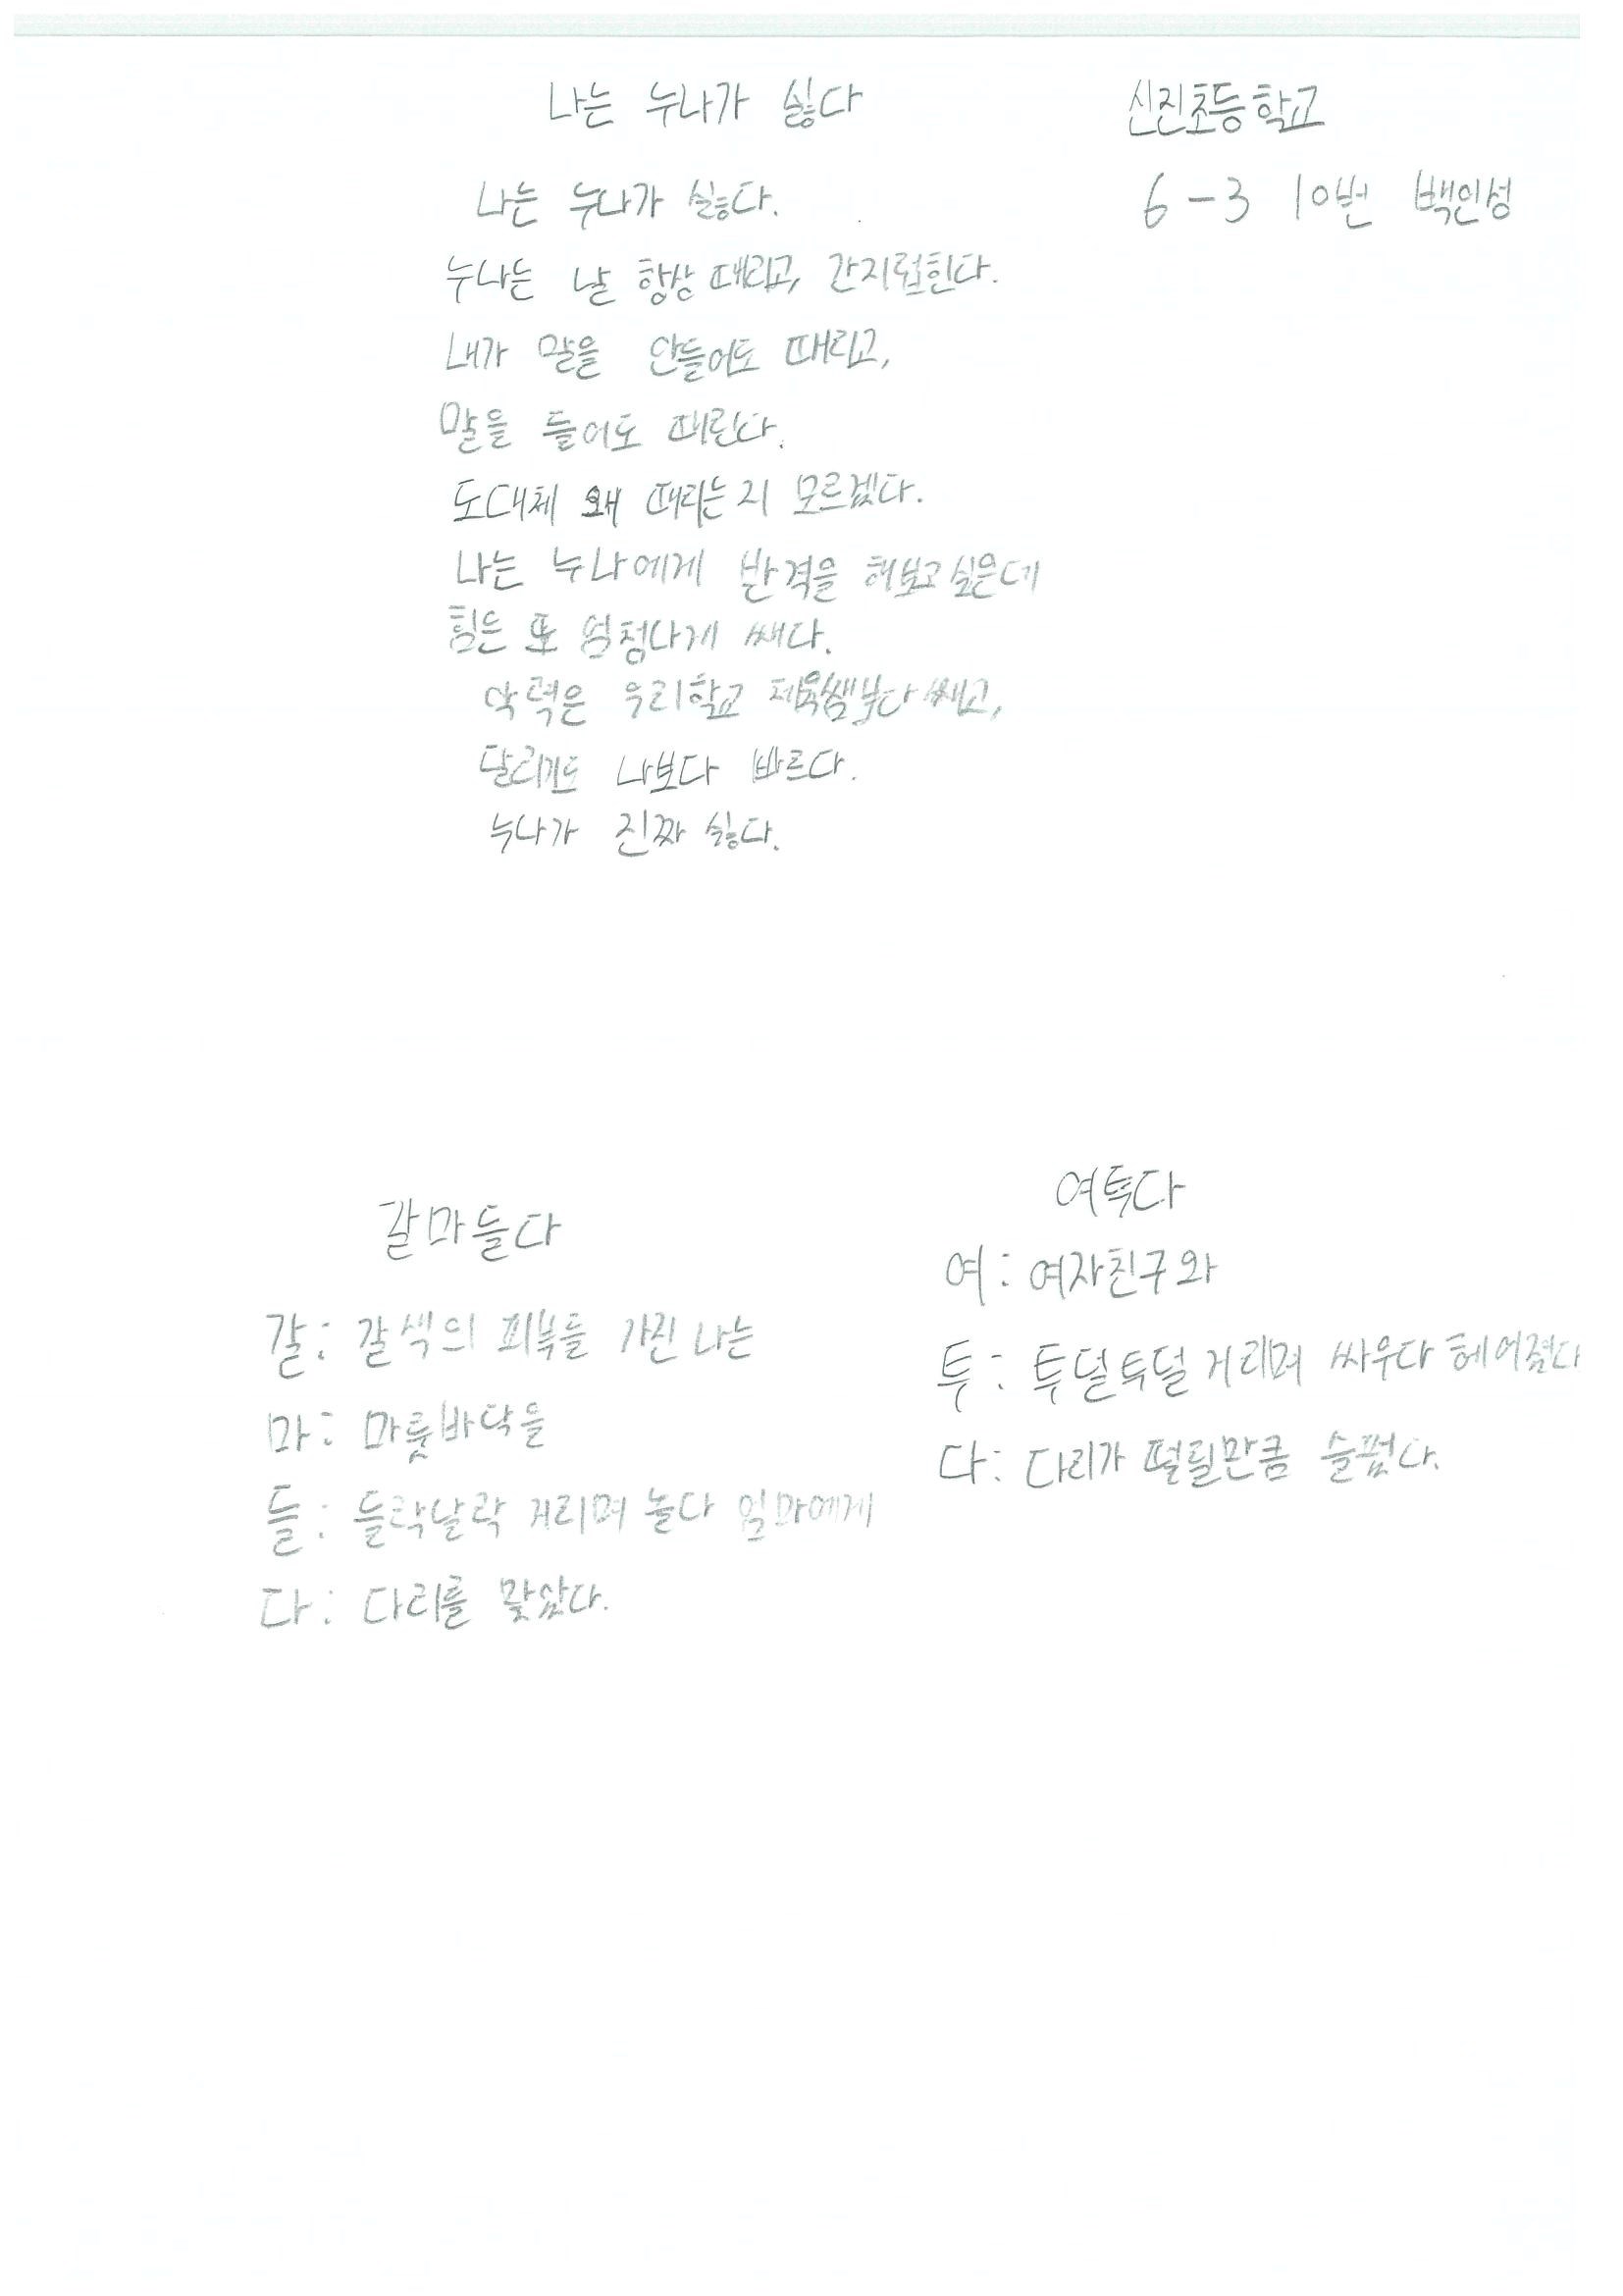 나는 누나가 싫다
신진초등학교
6-3 10번 백인성
나는 누나가 싫다.
누나는 날 항상 때리고, 간지럽힌다.
내가 말을 안들어도 때리고,
말을 들어도 때린다.
도대체 왜 때리는지 모르겠다.
나는 누나에게 반격을 해보고싶은데
힘은 또 엄청나게 쌔다.
악력은 우리학교 체육쌤보다 쌔고,
달리기도 나보다 빠르다.
누나가 진짜 싫다.
갈마들다
갈: 갈색의 피부를 가진 나는
마: 마룻바닥을
들: 들락날락 거리며 놀다 엄마에게
다: 다리를 맞았다.
여투다
여: 여자친구와
투: 투덜투덜 거리며 싸우다 헤어졌다
다: 다리가 떨릴만큼 슬펐다.